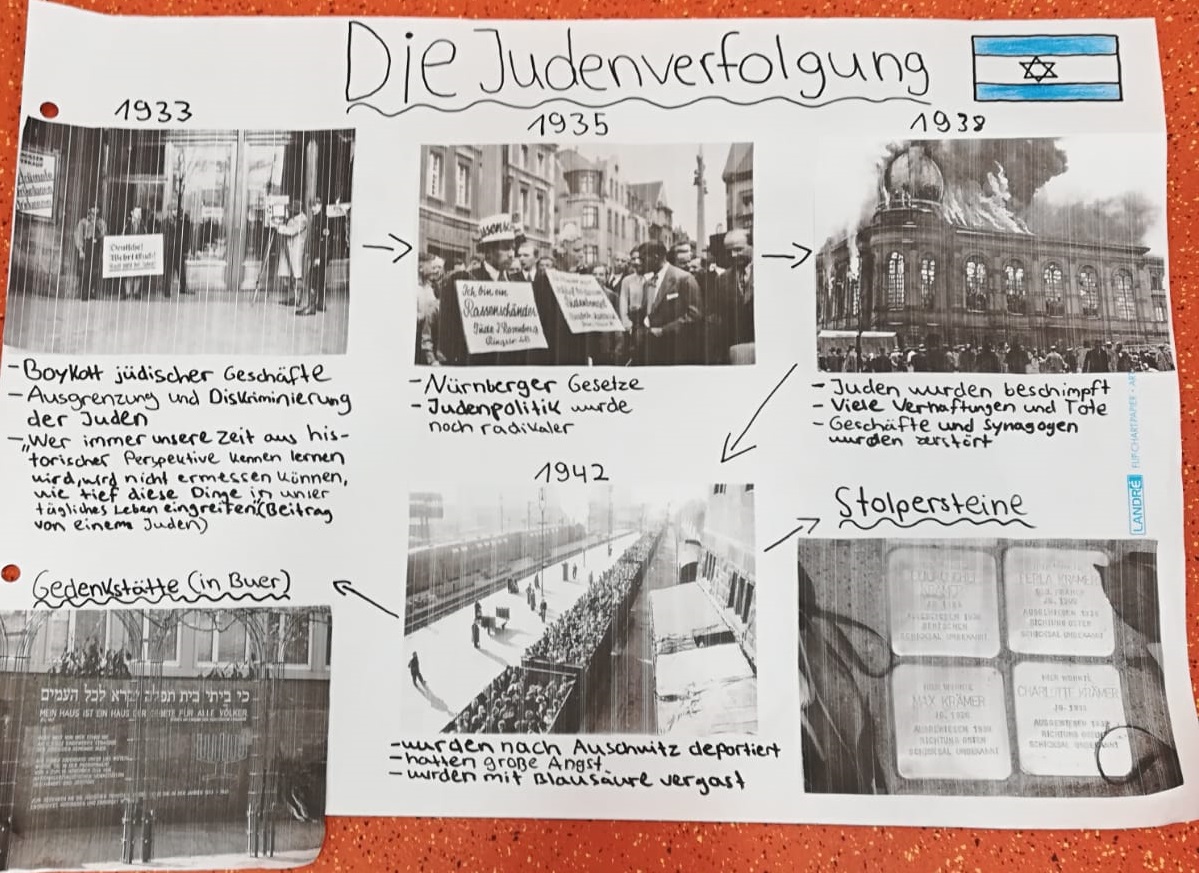 Die Judenverfolgung
1933
Deutsche!
Wehrt Euch!
- Boykott jüdischer Geschäfte
- Ausgrenzung und Diskriminierung
der Juden
- Wer immer unsere Zeit aus his-
"torischer Perspektive kennen lernen
wird, wird nicht ermessen können,
wie tief diese Dinge in unser
tägliches Leben eingreifen"(Beitrag
von einem Juden)
1935
Ich bin ein
Rassenschänder
- Nürnberger Gesetze
- Judenpolitik wurde
noch radikaler
1938
- Juden wurden beschimpft
- Viele Verhaftungen und Tote
- Geschäfte und Synagogen
wurden zerstört
LANDRÉ FLIPCHARTPAPIER
1942
- wurden nach Auschwitz deportiert
- hatten große Angst
- wurden mit Blausäure vergast
Stolpersteine
KRÄMER
SCHICKSAL UNBEKANNT
PERLA KRÄMER
SCHICKSAL UNBEKANNT
HIER WOHNTE
MAX KRÄMER
RICHTUNG OSTEN
SCHICKSAL UNBEKANNT
HIER WOHNTE
CHARLOTTE KRÄMER
SCHICKSAL UNBEKANNT
Gedenkstätte (in Buer)
כי ביתי בית תפלה יקרא לכל העמים
MEIN HAUS IST EIN HAUS DER GEBETE FÜR ALLE VÖLKER